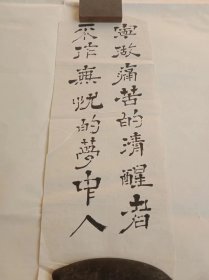 寧做痛苦的清醒者
不作無忧的夢中人